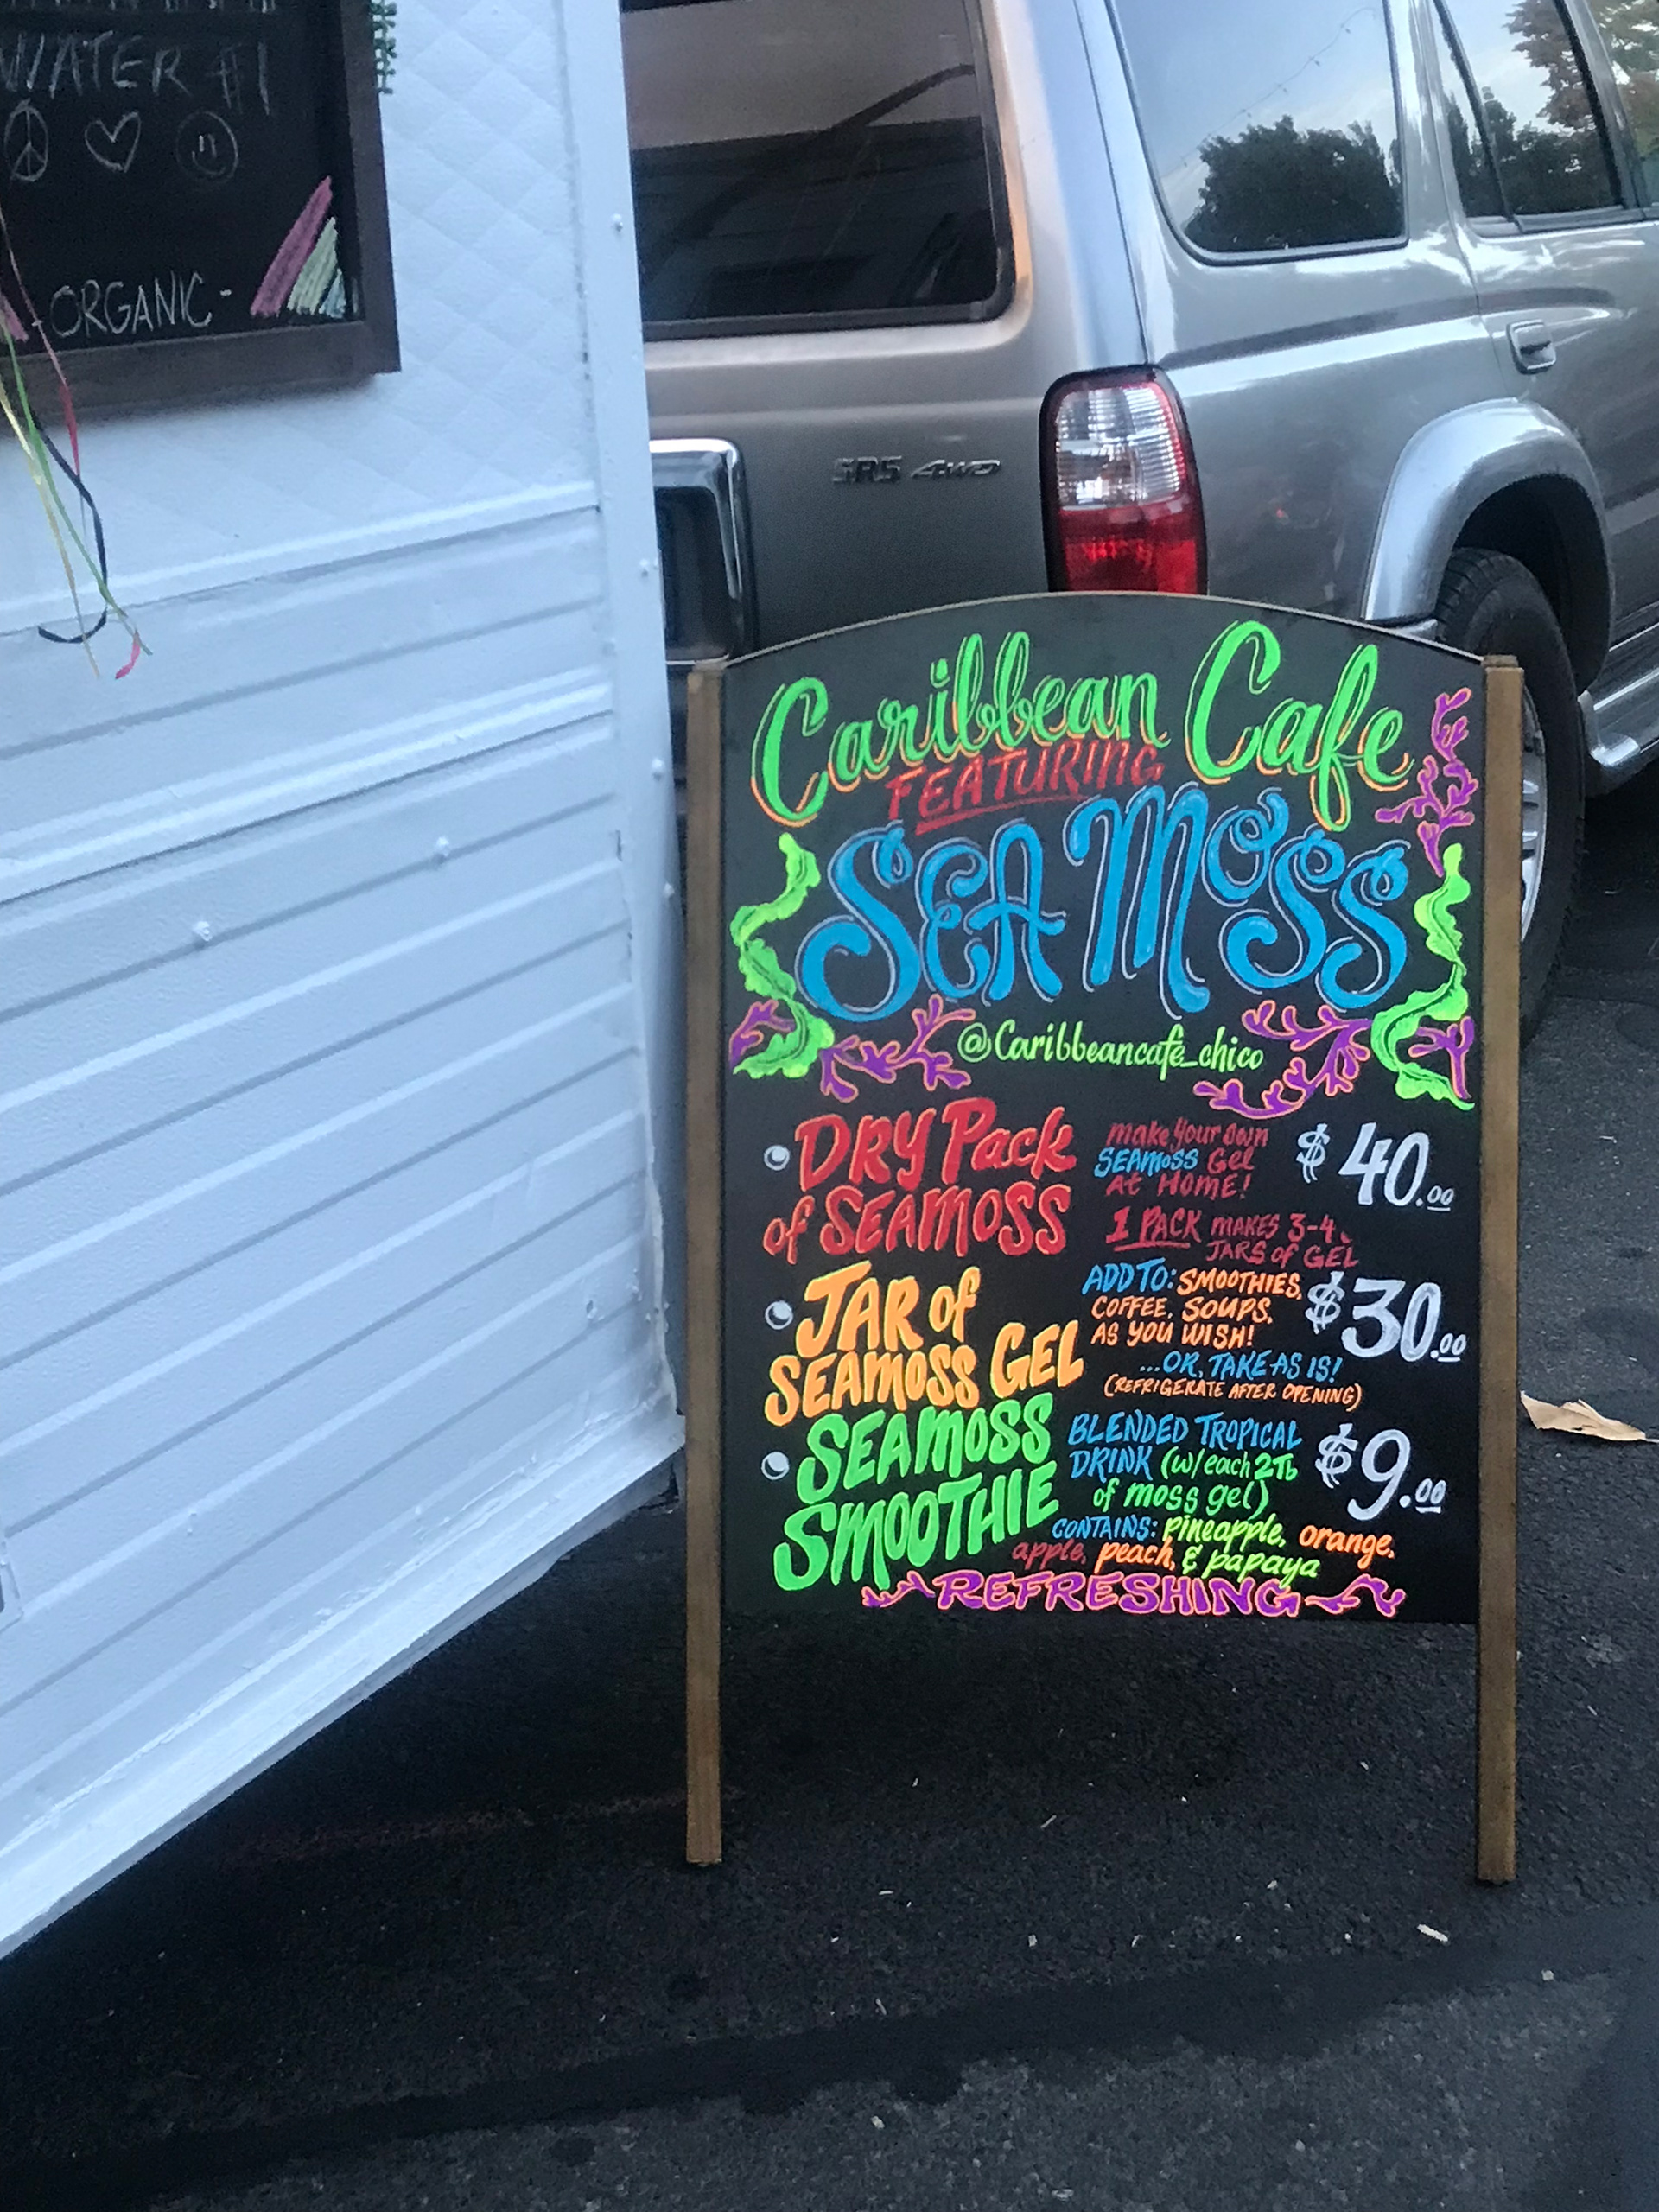 WATER $1
-ORGANIC-
SR5 4WD
Caribbean Cafe
FEATURING
SEA MOSS
@Caribbeancafe_chico
DRY Pack
of SEAMOSS
make your own
SEAMOSS Gel
At HOME!
$40.00
1 PACK MAKES 3-4
JARS of GEL
JAR of
SEAMOSS GEL
ADD TO: SMOOTHIES,
COFFEE, SOUPS,
AS YOU WISH!
$30.00
...OR, TAKE AS IS!
(REFRIGERATE AFTER OPENING)
SEAMOSS
SMOOTHIE
BLENDED TROPICAL
DRINK (w/each 2Tb
of moss gel)
$9.00
CONTAINS: pineapple, orange,
apple, peach, & papaya
REFRESHING